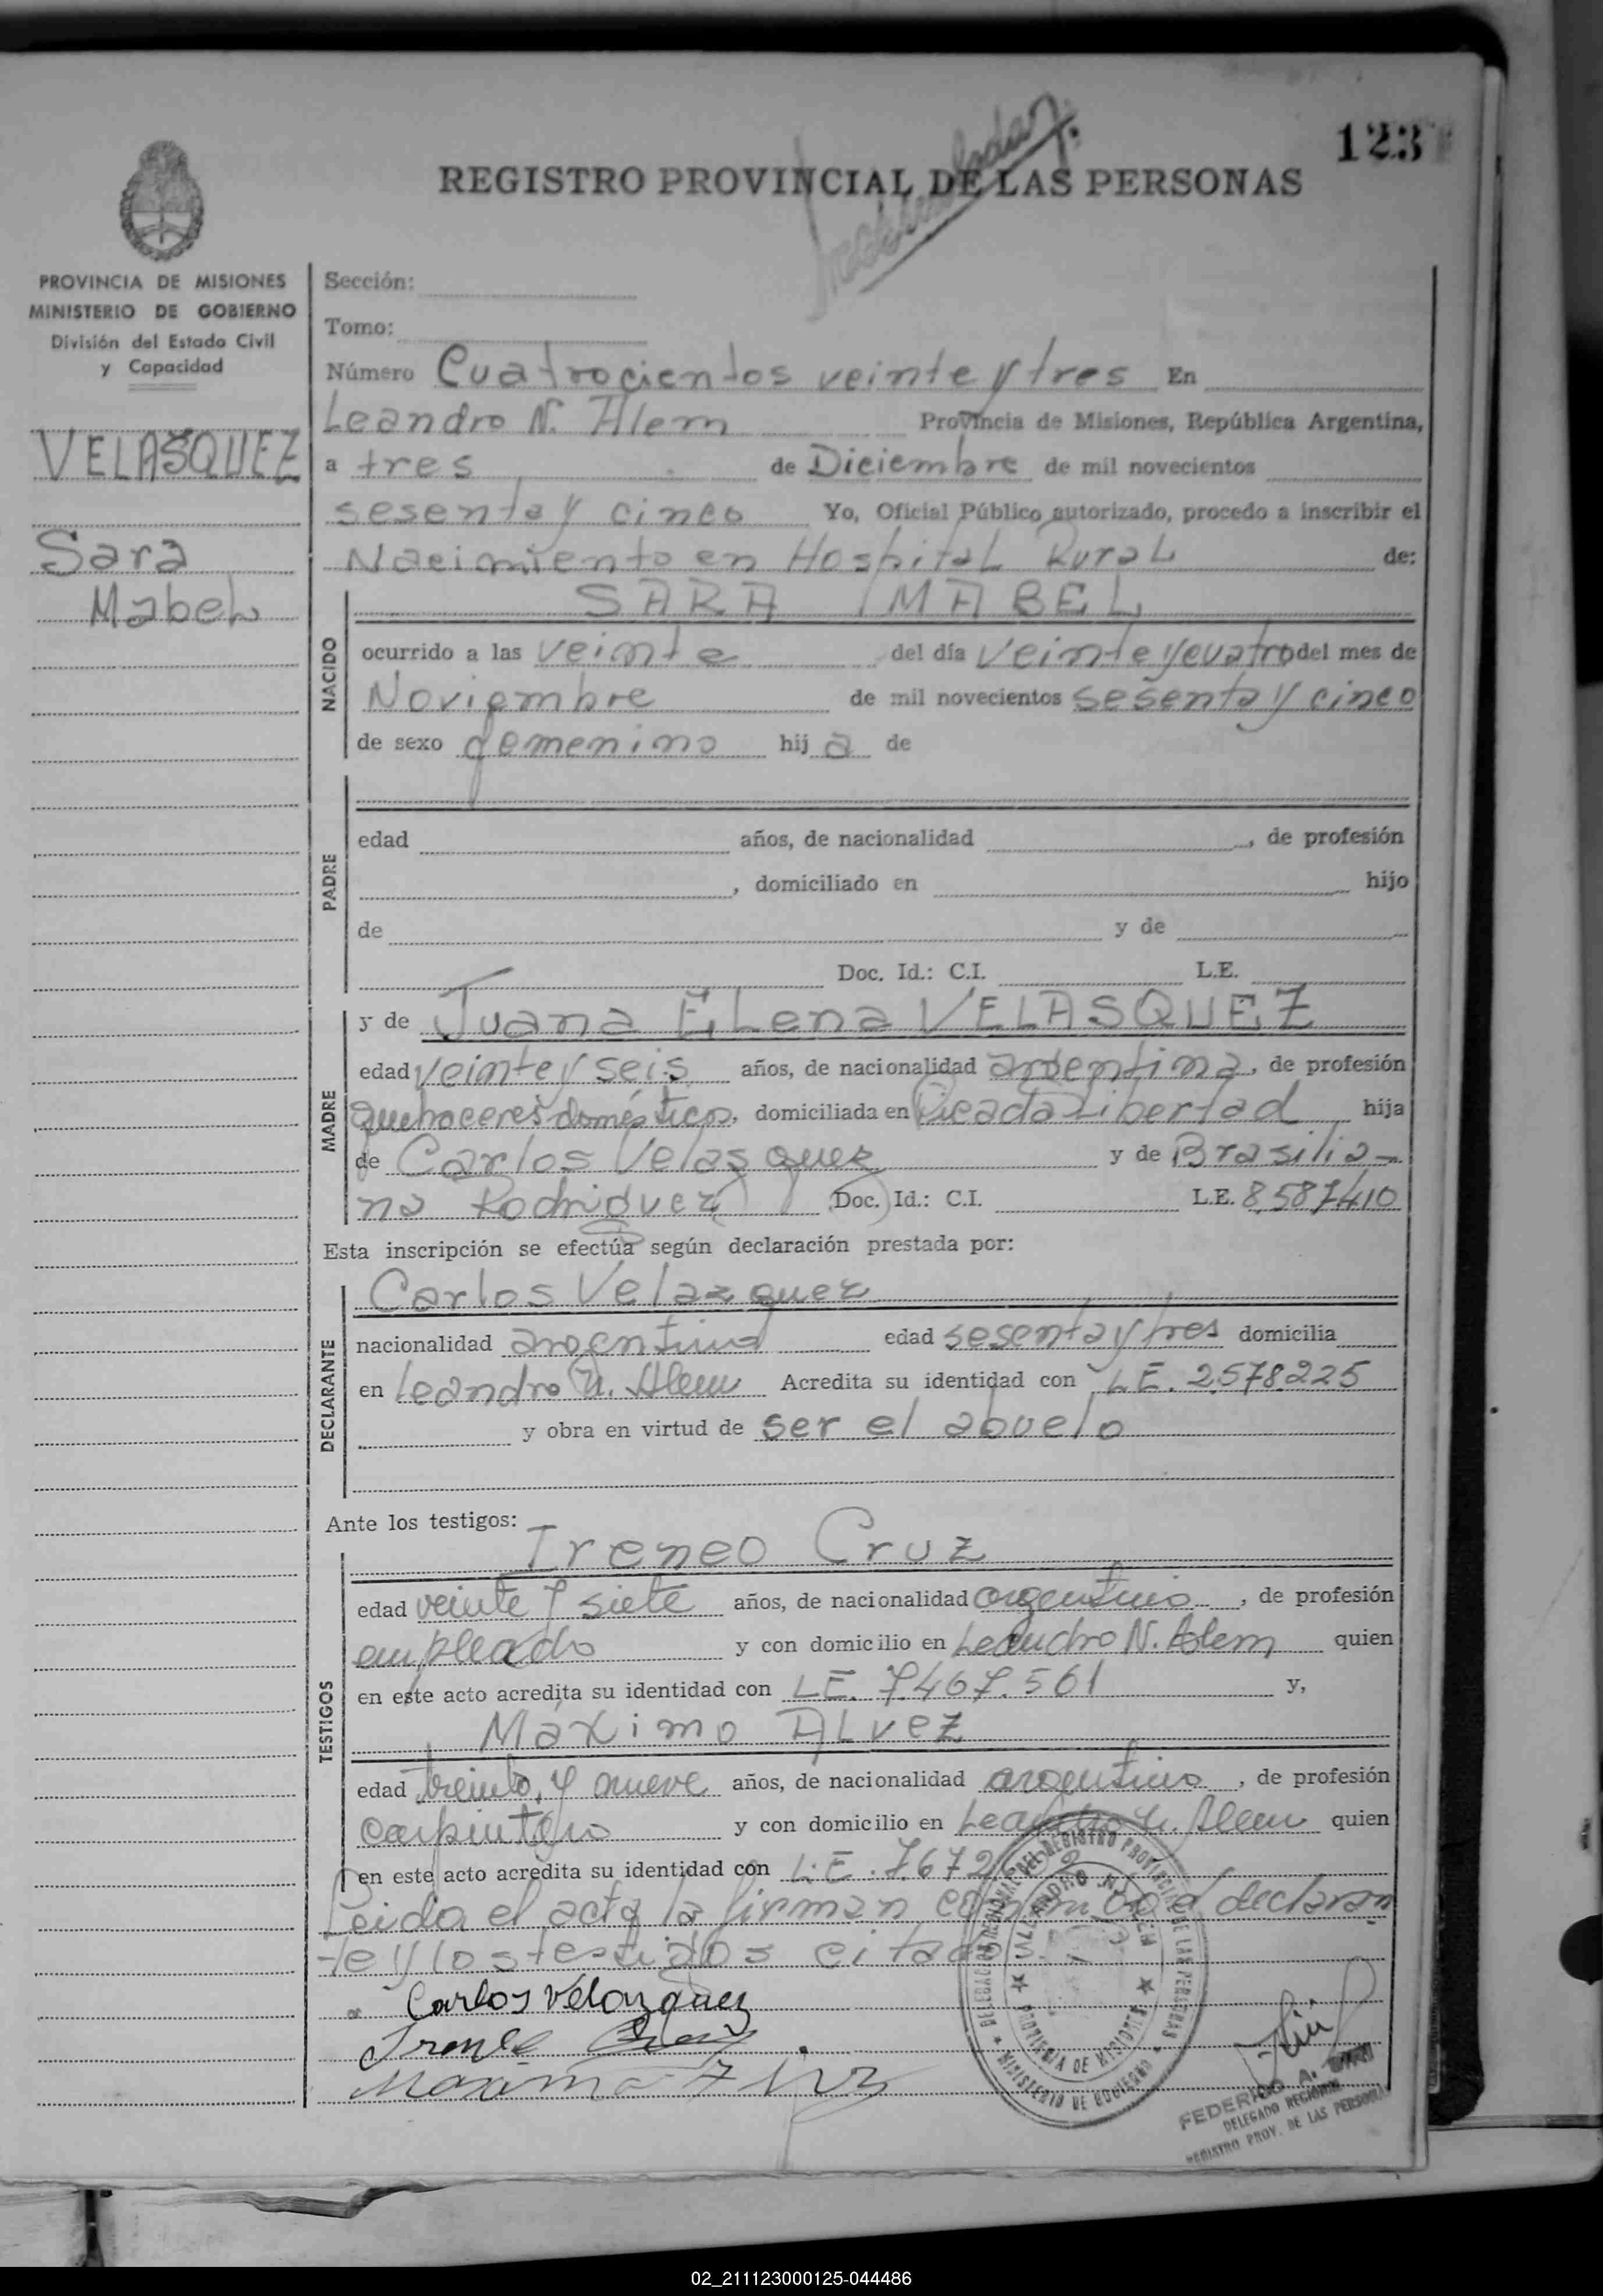 123
REGISTRO PROVINCIAL DE LAS PERSONAS
PROVINCIA DE MISIONES
MINISTERIO DE GOBIERNO
División del Estado Civil
y Capacidad
VELASQUEZ
Sara
Mabel
Sección:
Tomo:
Número Cuatrocientos veinte y tres En
Leandro N. Alem Provincia de Misiones, República Argentina,
a tres de Diciembre de mil novecientos
sesenta y cinco Yo, Oficial Público autorizado, procedo a inscribir el
Nacimiento en Hospital Rural de:
NACIDO
SARA MABEL
ocurrido a las veinte del día veinte y cuatro del mes de
Noviembre de mil novecientos sesenta y cinco
de sexo femenino hij a de
PADRE
edad años, de nacionalidad , de profesión
, domiciliado en hijo
de y de
Doc. Id.: C.I. L.E.
MADRE
y de Juana Elena VELASQUEZ
edad veinte y seis años, de nacionalidad argentina, de profesión
quehaceres domésticos, domiciliada en Picada Libertad hija
de Carlos Velasquez y de Brasilia-
na Rodriguez Doc. Id.: C.I. L.E. 8.587.410
Esta inscripción se efectúa según declaración prestada por:
DECLARANTE
Carlos Velazquez
nacionalidad argentina edad sesenta y tres domicilia
en Leandro N. Alem Acredita su identidad con L.E. 2.578.225
y obra en virtud de ser el abuelo
Ante los testigos:
TESTIGOS
Ireneo Cruz
edad veinte y siete años, de nacionalidad argentino, de profesión
empleado y con domicilio en Leandro N. Alem quien
en este acto acredita su identidad con L.E. 7.467.561 y,
Máximo Alvez
edad treinta y nueve años, de nacionalidad argentino, de profesión
carpintero y con domicilio en Leandro N. Alem quien
en este acto acredita su identidad con L.E. 7.672
Leida el acta la firman conmigo el declaran
te y los testigos citados
Carlos Velazquez
DELEGACION REGIONAL DEL REGISTRO PROVINCIAL DE LAS PERSONAS
LEANDRO N. ALEM
PROVINCIA DE MISIONES
MINISTERIO DE GOBIERNO
FEDERICO A.
DELEGADO REGIONAL
REGISTRO PROV. DE LAS PERSONAS
02_211123000125-044486